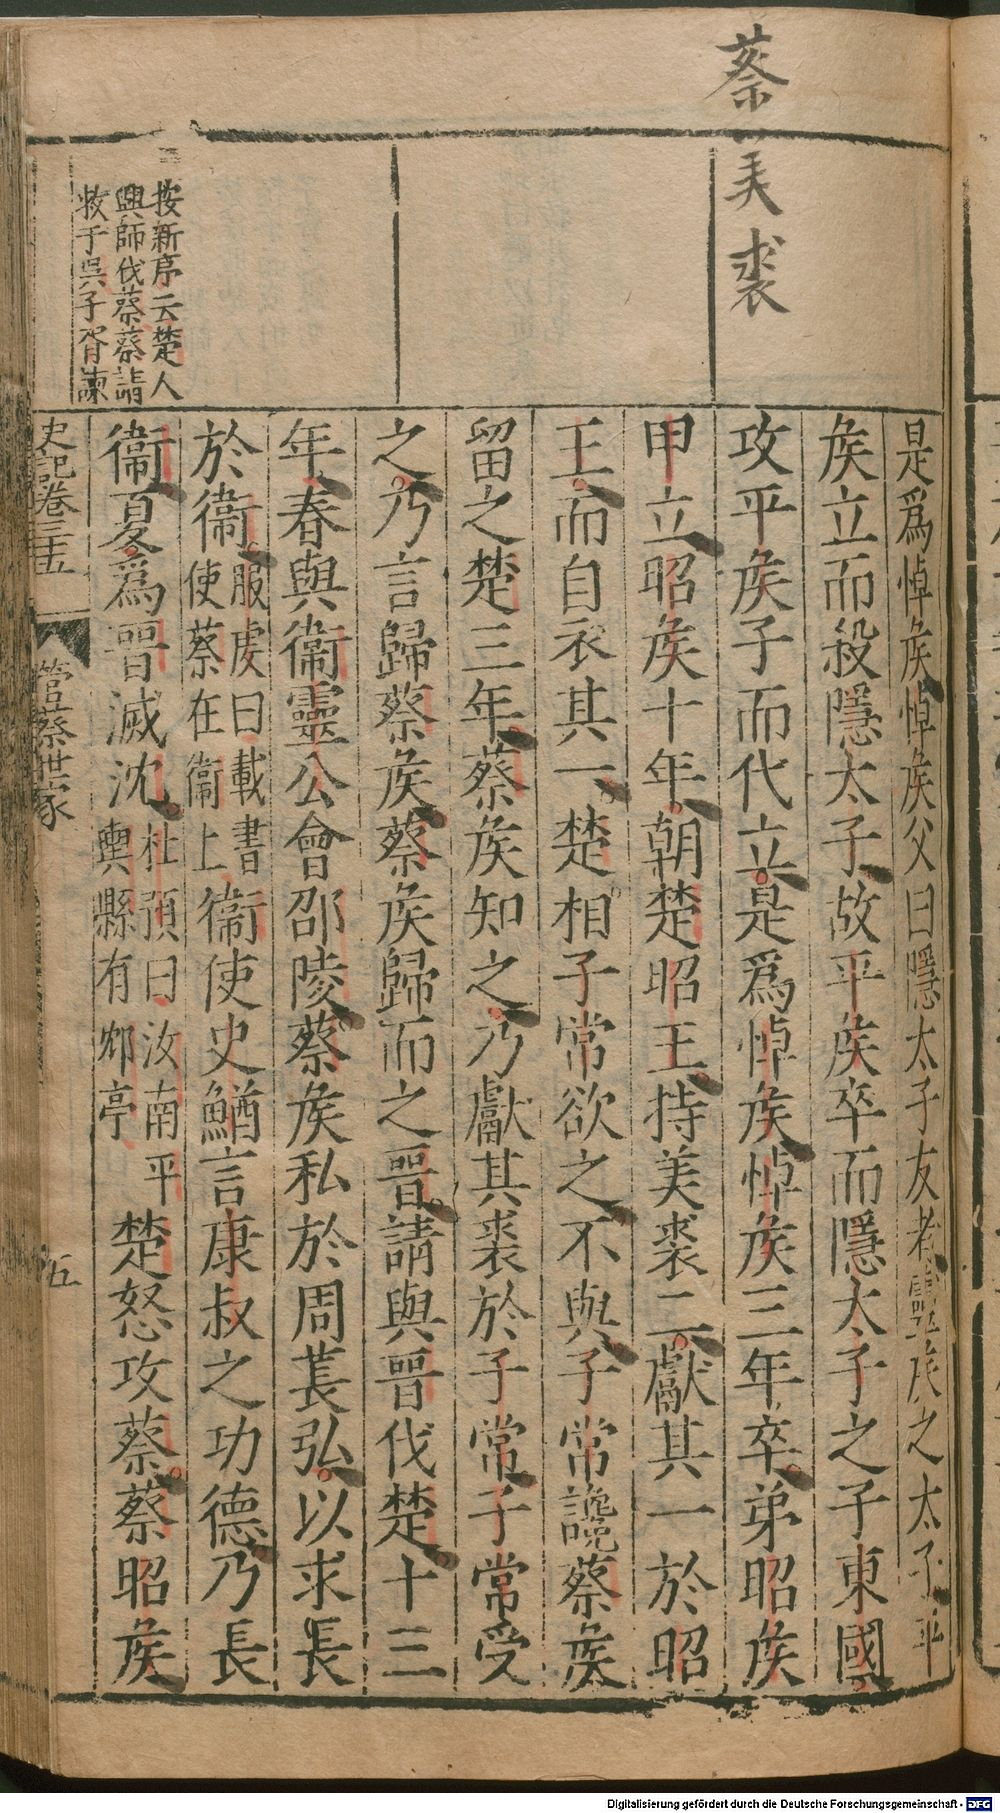 蔡
美裘
按新序云楚人
興師伐蔡蔡請
救于吳子胥諫
是爲悼矦悼矦父曰隱太子友者靈矦之太子平
矦立而殺隱太子故平矦卒而隱太子之子東國
攻平矦子而代立是爲悼矦悼矦三年卒弟昭矦
甲立昭矦十年朝楚昭王持美裘二獻其一於昭
王而自衣其一楚相子常欲之不與子常讒蔡矦
留之楚三年蔡矦知之乃獻其裘於子常子常受
之乃言歸蔡矦蔡矦歸而之晋請與晋伐楚十三
年春與衞靈公會邵陵蔡矦私於周萇弘以求長
於衞服虔曰載書使蔡在衞上衞使史鰌言康叔之功德乃長
衞夏爲晋滅沈杜預曰汝南平輿縣有䢴亭楚怒攻蔡蔡昭矦
史記卷三十五
管蔡世家
五
Digitalisierung gefördert durch die Deutsche Forschungsgemeinschaft - DFG